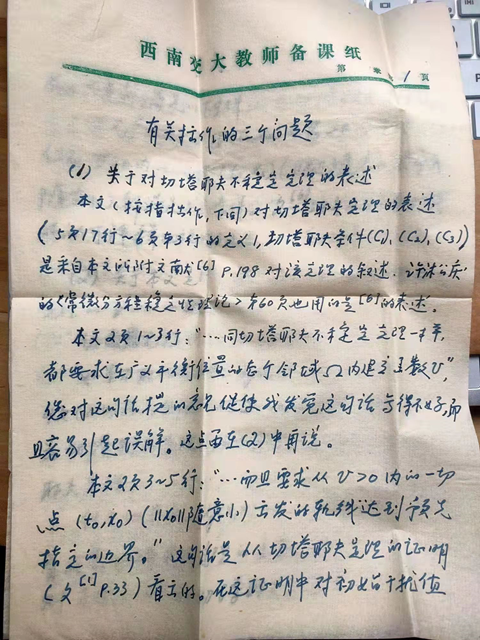 西南交大教师备课纸
第 章 1 页
有关拙作的三个问题
(1) 关于对切塔耶夫不稳定定理的表述
本文(按指拙作,下同)对切塔耶夫定理的表述
(5页17行~6页第3行的定义1,切塔耶夫条件(C₁),(C₂),(C₃))
是采自本文所附文献[6] P.198对该定理的叙述.许淞庆
的《常微分方程稳定性理论》第60页也用的是[6]的表述.
本文2页1~3行:“…同切塔耶夫不稳定定理一样,
都要求在广义平衡位置的某个邻域Ω内建立函数V”,
您对这句话提的意见促使我发觉这句话写得不好,而
且容易引起误解。这点再在(2)中再说。
本文2页3~5行:“…而且要求从V>0内的一切
点(t₀,x₀)(‖x₀‖随意小)出发的轨线达到预先
指定的边界。”这句话是从切塔耶夫定理的证明
(文[1] P.33)看出的。在这证明中对初始干扰值